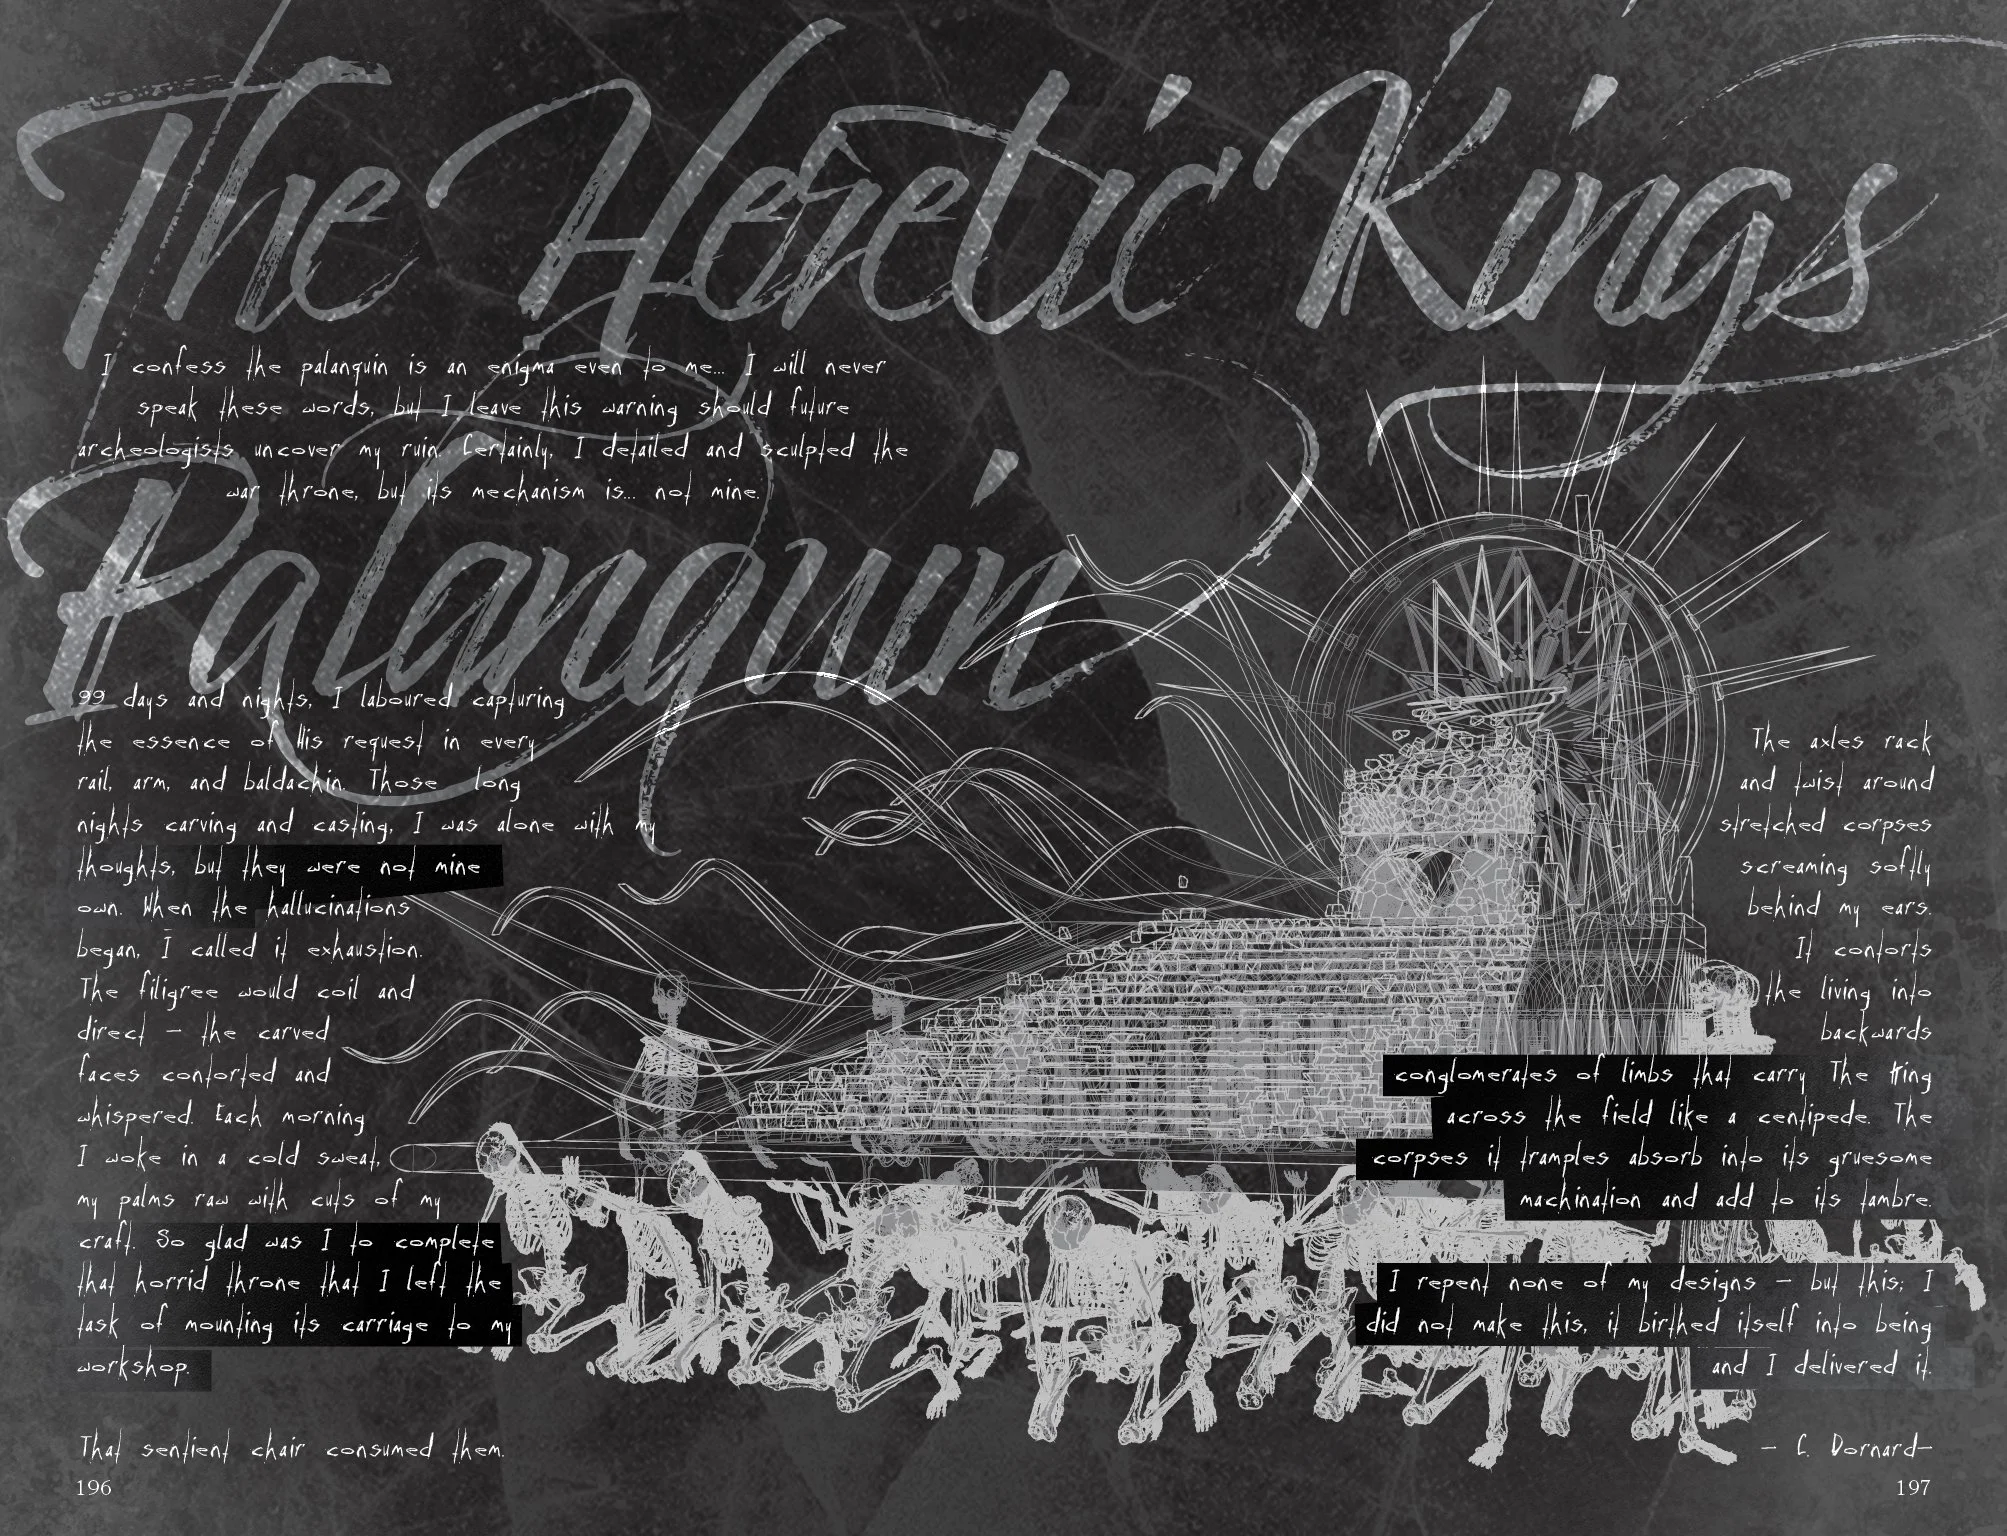 The Heretic Kings
I confess the palanquin is an enigma even to me... I will never
speak these words, but I leave this warning should future
archeologists uncover my ruin. Certainly, I detailed and sculpted the
war throne, but its mechanism is... not mine.
Palanquin
99 days and nights, I laboured capturing
the essence of His request in every
rail, arm, and baldachin. Those long
nights carving and casting, I was alone with my
thoughts, but they were not mine
own. When the hallucinations
began, I called it exhaustion.
The filigree would coil and
direct — the carved
faces contorted and
whispered. Each morning
I woke in a cold sweat,
my palms raw with cuts of my
craft. So glad was I to complete
that horrid throne that I left the
task of mounting its carriage to my
workshop.
That sentient chair consumed them.
196
The axles rack
and twist around
stretched corpses
screaming softly
behind my ears.
It contorts
the living into
backwards
conglomerates of limbs that carry The King
across the field like a centipede. The
corpses it tramples absorb into its gruesome
machination and add to its tambre.
I repent none of my designs — but this; I
did not make this, it birthed itself into being
and I delivered it.
— C. Dornard—
197